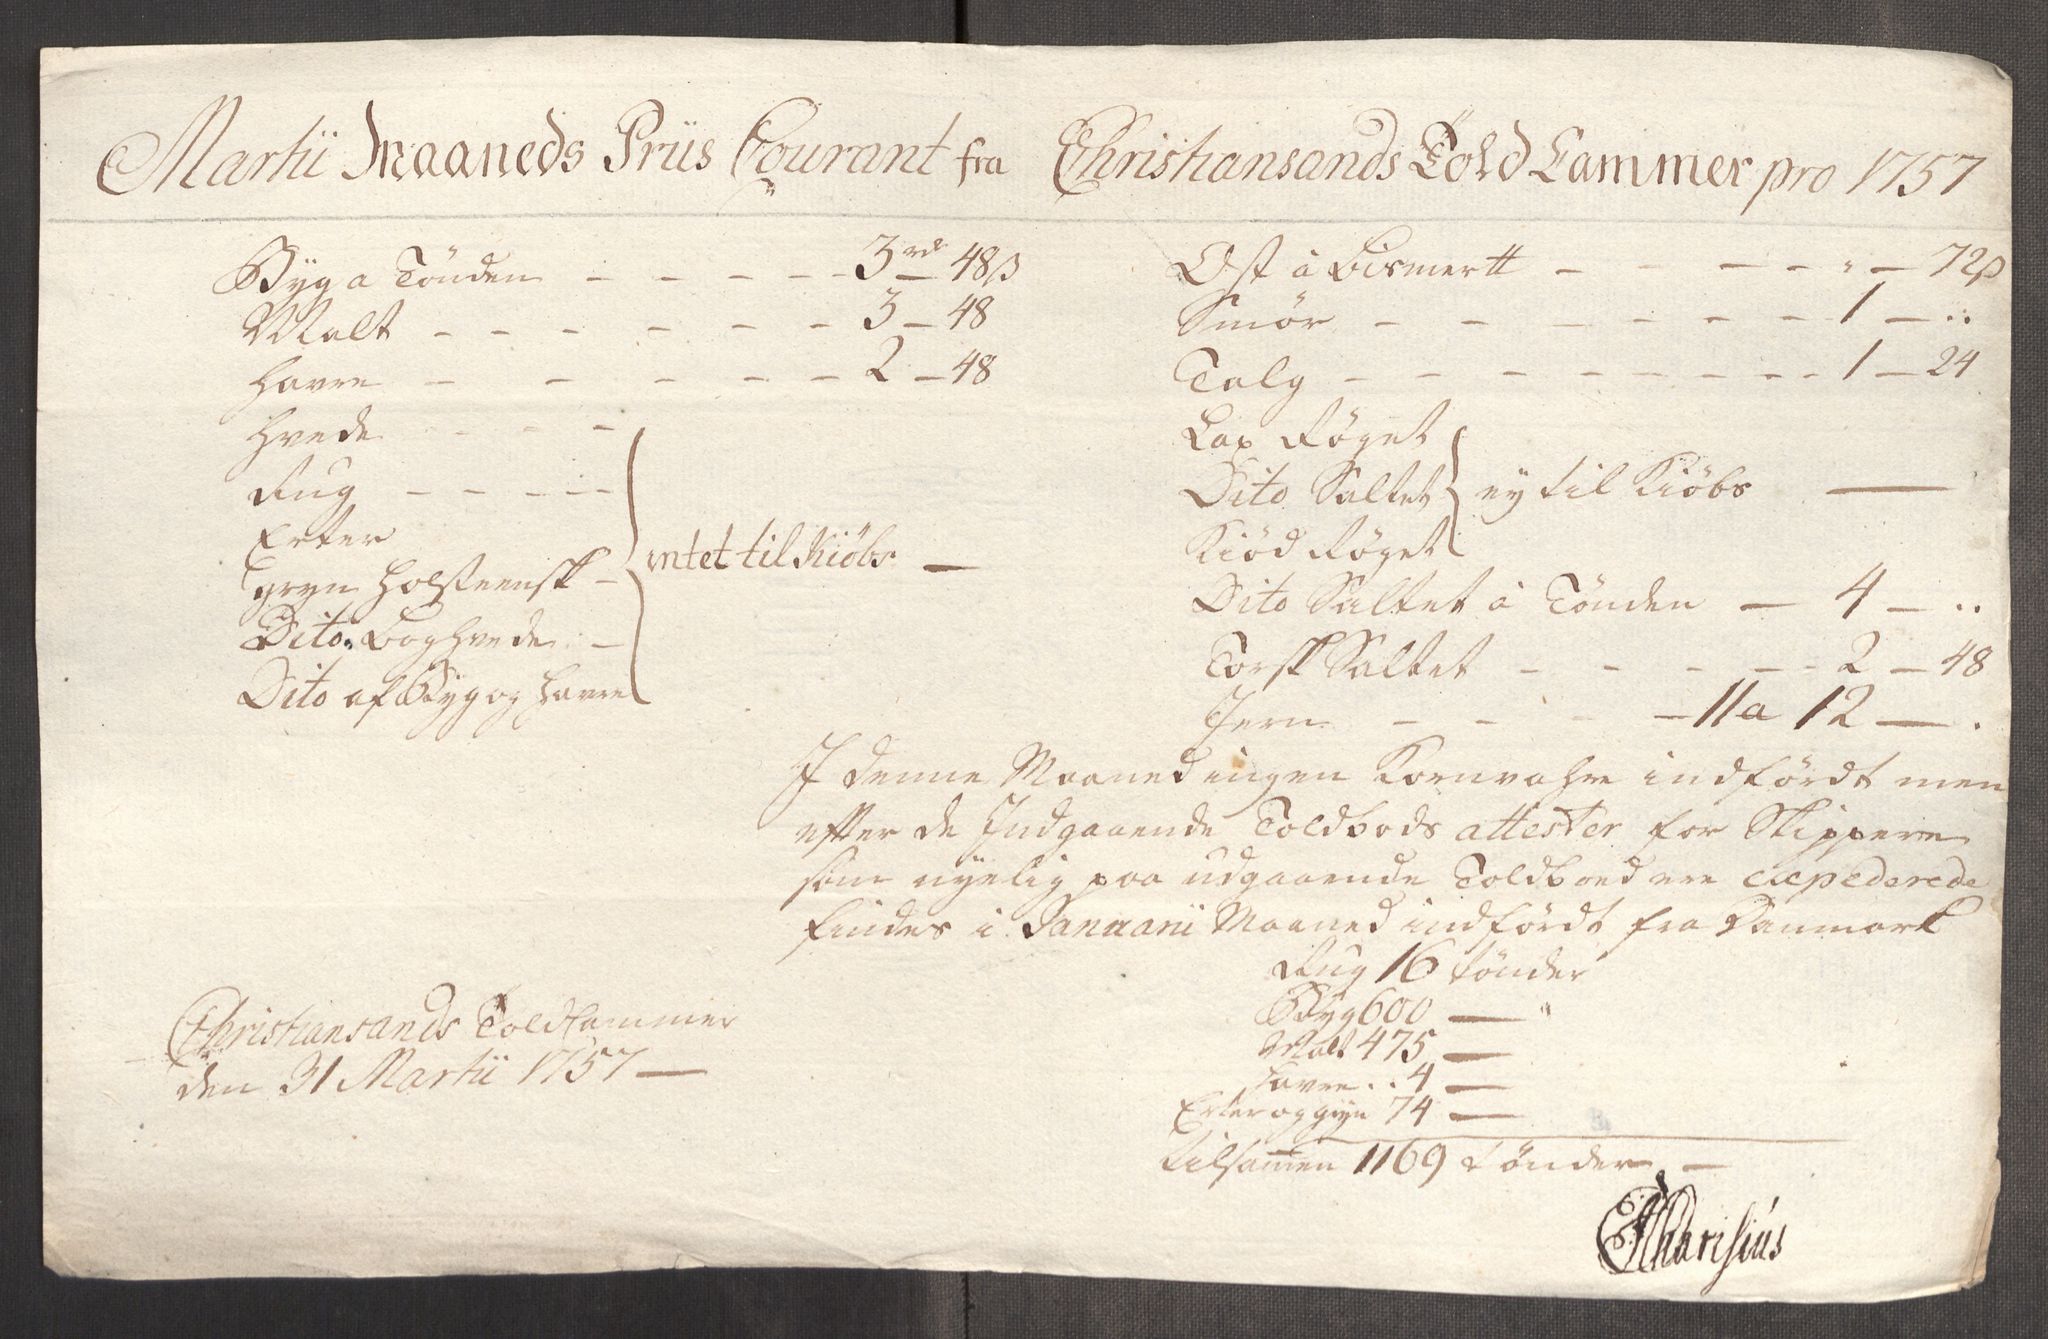 Martii Maaneds Priis Courant fra Christiansands Told Cammer pro 1757
Byg a Tönden — 3 rd — 48 ß
Malt — 3 — 48
Havre — 2 — 48
Hvede
Rug
Erter
gryn Holsteensk
Dito. Boghvede
Dito af Byg og Havre
intet til Kiöbs —
Ost á Bismertt — " — 72 ß
Smör — 1 — "
Talg — 1 — 24
Lax Röget
Dito Saltet
Kiöd Röget
ey til Kiöbs —
Dito Saltet á Tönden — 4 — "
Torsk Saltet — 2 — 48
Jern — 11 a 12 —
I denne Maaned ingen Kornvahre indfördt men
efter de Indgaaende Toldbods attester for Skippere
som nyelig paa udgaaende Toldboed ere expederede
findes i Januarii Maaned indfördt fra Danmark
Rug 16 tönder
Byg 600 — "
Malt 475 —
Havre .. 4 —
Erter og gryn 74 —
tilsammen 1169 tönder —
Christiansands Toldcammer
den 31 Martii 1757 —